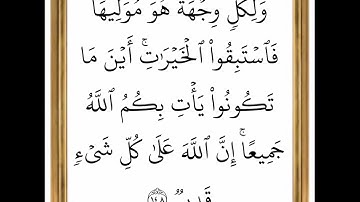 وَلِكُلٍّ وِجْهَةٌ هُوَ مُوَلِّيهَا
فَٱسْتَبِقُوا۟ ٱلْخَيْرَٰتِ ۚ أَيْنَ مَا
تَكُونُوا۟ يَأْتِ بِكُمُ ٱللَّهُ
جَمِيعًا ۚ إِنَّ ٱللَّهَ عَلَىٰ كُلِّ شَىْءٍ
قَدِيرٌ ١٤٨